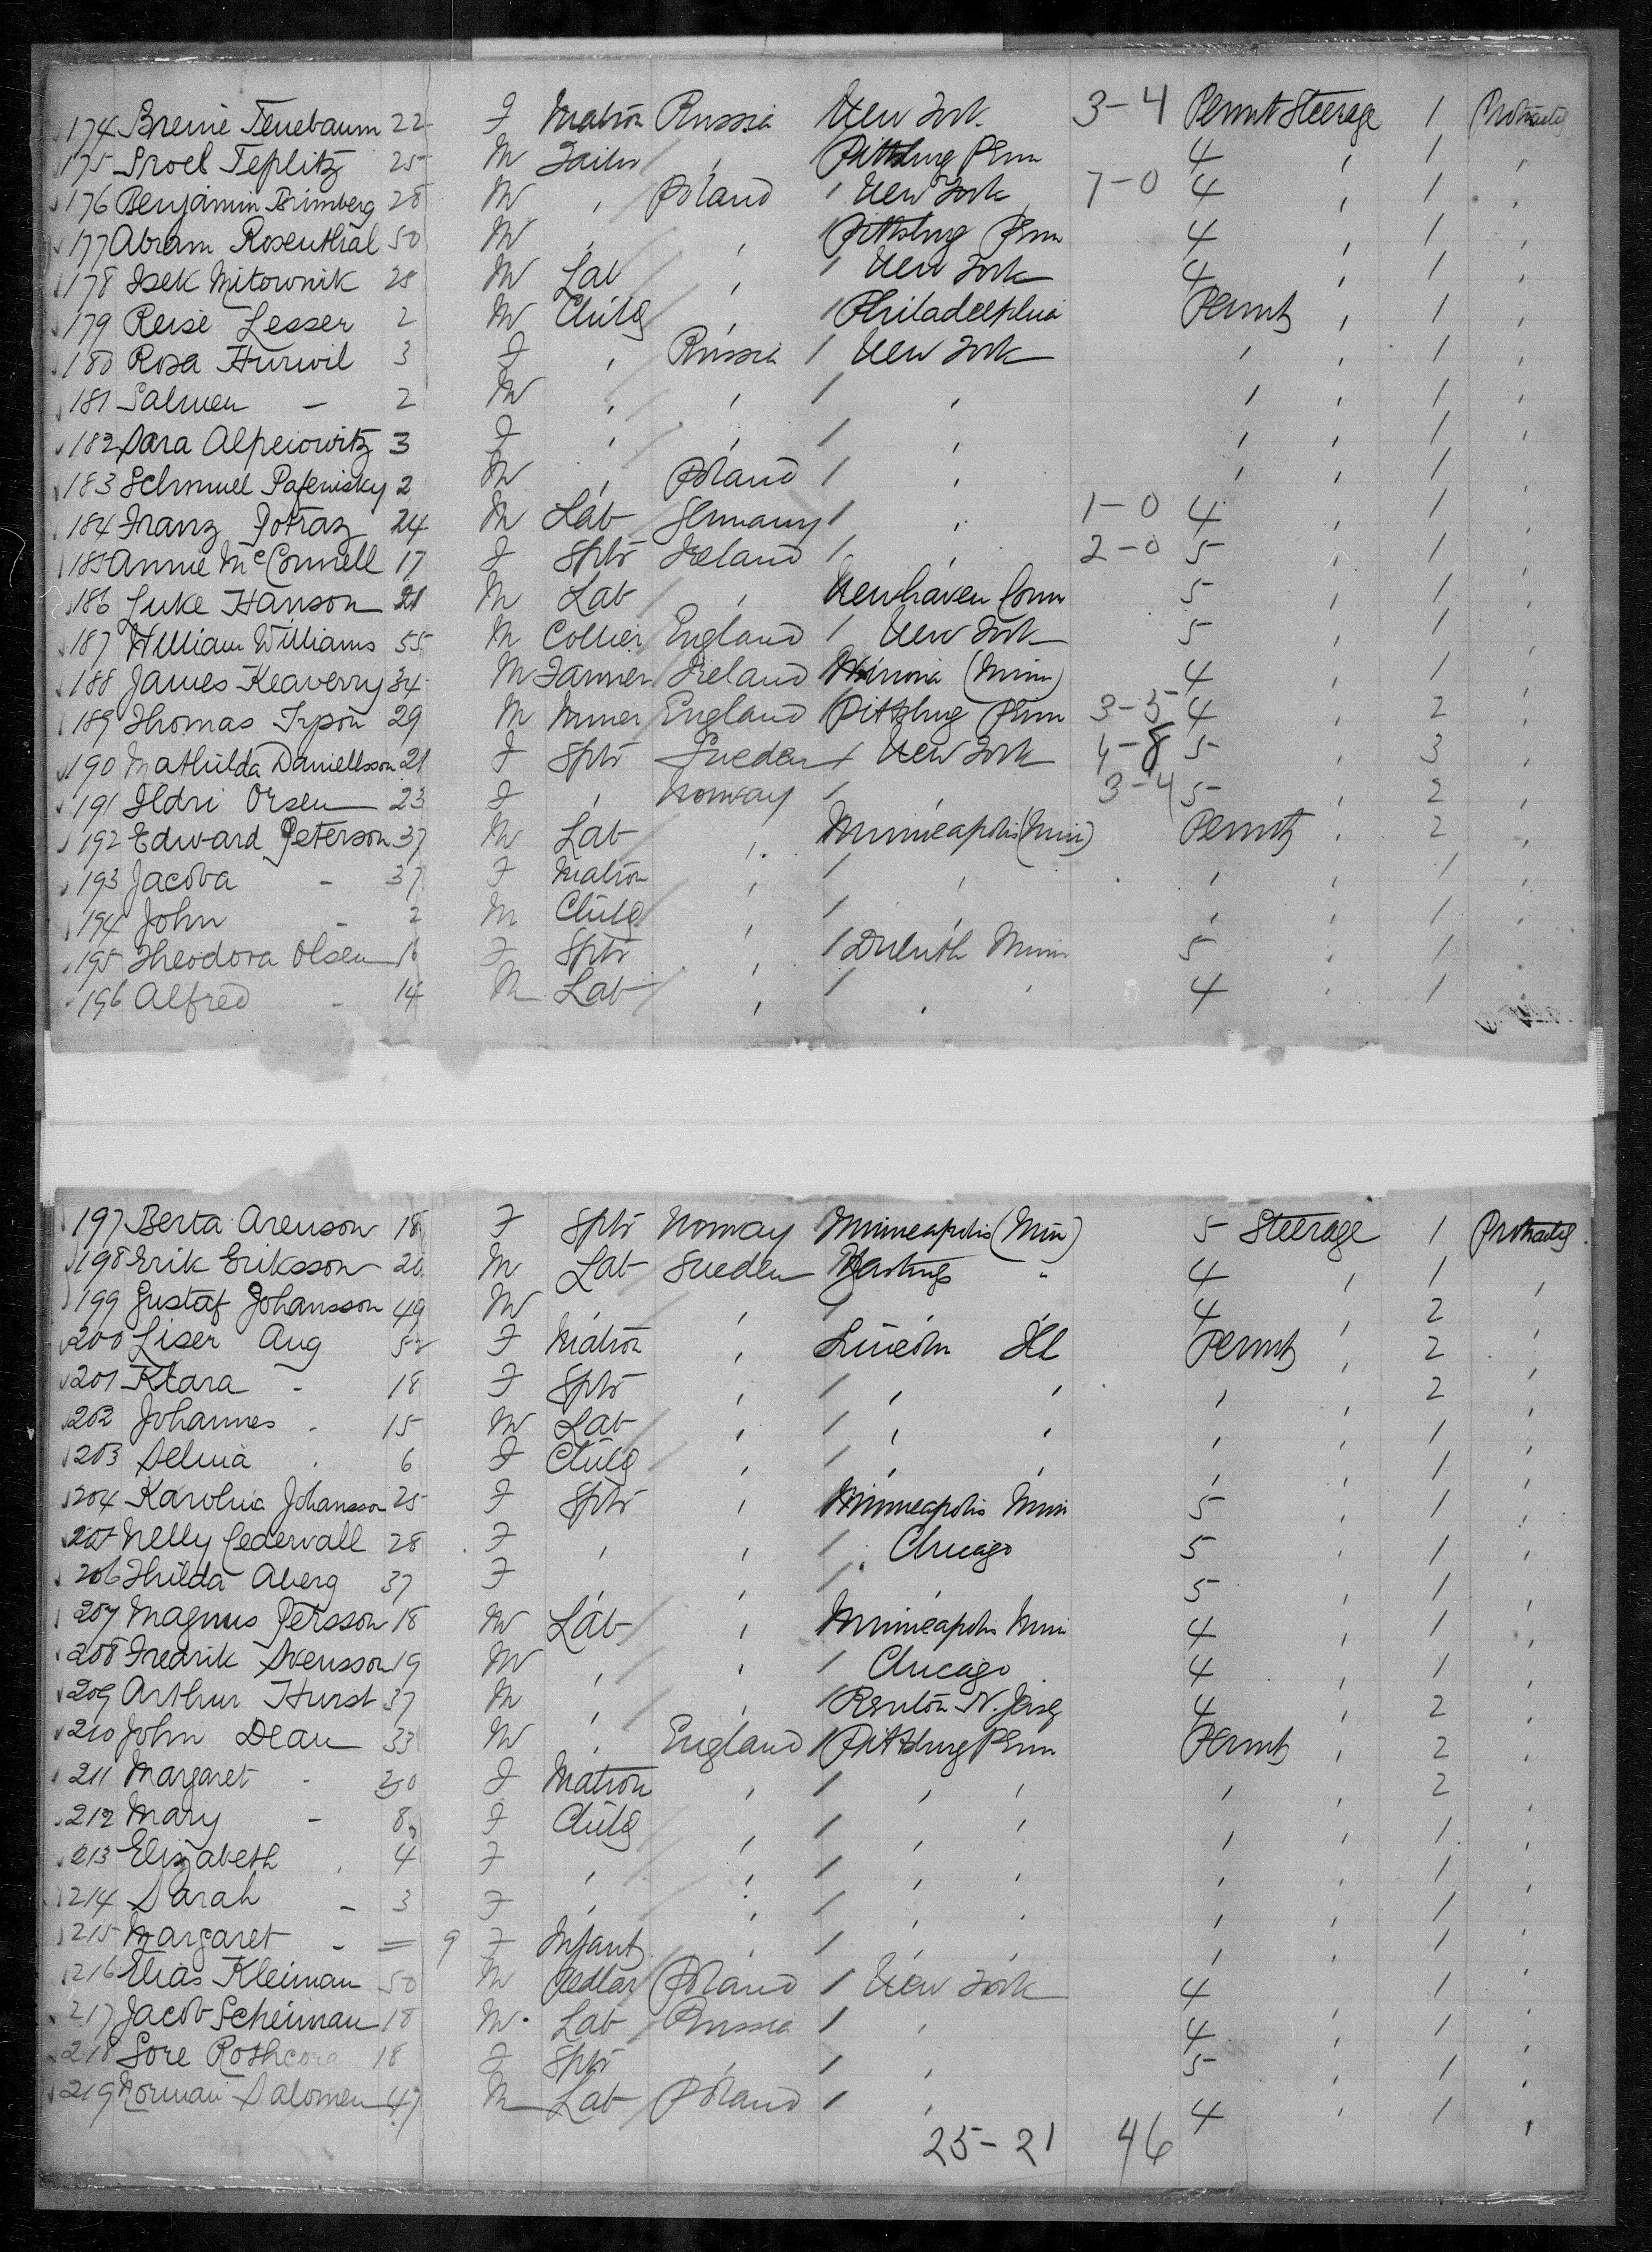 174 Breine Tenebaum 22 F Matron Russia New York 3-4 Permt Steerage 1 Protracted
175 Sroel Teplitz 25 M Tailor " Pittsburg Penn 4 " 1 "
176 Benjamin Brimberg 28 M " Poland New York 7-0 4 " 1 "
177 Abram Rosenthal 50 M " " Pittsburg Penn 4 " 1 "
178 Isek Mitownik 28 M Lab " New York 4 " 1 "
179 Reise Lesser 2 M Child " Philadelphia Permt " 1 "
180 Rosa Hurwil 3 F " Russia New York " " 1 "
181 Salmen - 2 M " " " " " 1 "
182 Sara Alperowitz 3 F " " " " " 1 "
183 Schmuel 2 M " Poland " " " 1 "
184 Franz Potraz 24 M Lab Germany " 1-0 4 " 1 "
185 Annie McConnell 17 F Sptr Ireland " 2-0 5 " 1 "
186 Luke Hanson 21 M Lab " Newhaven Conn 5 " 1 "
187 William Williams 55 M Collier England New York 5 " 1 "
188 James Keaverry 34 M Farmer Ireland Winona (Minn) 4 " 1 "
189 Thomas Tryson 29 M Miner England Pittsburg Penn 3-5 4 " 2 "
190 Mathilda Daniellsson 21 F Sptr Sueden New York 4-8 5 " 3 "
191 Ildri Orsen 23 F " Norway " 3-4 5 " 2 "
192 Edward Peterson 37 M Lab " Minneapolis (Min) Permt " 2 "
193 Jacoba - 37 F Matron " " " " 1 "
194 John - 2 M Child " " " " 1 "
195 Theodora Olsen 16 F Sptr " Duluth Minn 5 " 1 "
196 Alfred - 14 M Lab " " " 4 " 1 "
197 Berta Arenson 18 F Sptr Norway Minneapolis (Min) 5 Steerage 1 Protracted
198 Erik Eriksson 20 M Lab Sueden Hastings " 4 " 1 "
199 Gustaf Johansson 49 M " " " " 4 " 2 "
200 Liser Aug 52 F Matron " Lincoln Ill Permt " 2 "
201 Klara - 18 F Sptr " " " " " 2 "
202 Johannes " 15 M Lab " " " " " 1 "
203 Selma " 6 F Child " " " " " 1 "
204 Karolina Johansson 25 F Sptr " Minneapolis Minn 5 " 1 "
205 Nelly Cedervall 28 F " " Chicago 5 " 1 "
206 Thilda Aberg 37 F " " " 5 " 1 "
207 Magnus Persson 18 M Lab " Minneapolis Minn 4 " 1 "
208 Fredrik Svensson 19 M " " Chicago 4 " 1 "
209 Arthur Hurst 37 M " " N. Jersey 4 " 2 "
210 John Dean 33 M " England Pittsburg Penn Permt " 2 "
211 Margaret - 30 F Matron " " " " 2 "
212 Mary - 8 F Child " " " " " 1 "
213 Elizabeth " 4 F " " " " " 1 "
214 Sarah - 3 F " " " " " " 1 "
215 Margaret - = 9 F Infant " " " " " 1 "
216 Elias Kleiman 50 M Pedlar Poland New York 4 1 "
217 Jacob Scheiman 18 M Lab Russia " 4 " 1 "
218 Sore Rothcora 18 F Sptr " " 5 " 1 "
219 Norman Salomen 47 M Lab Poland " 4 " 1 "
25-21 46